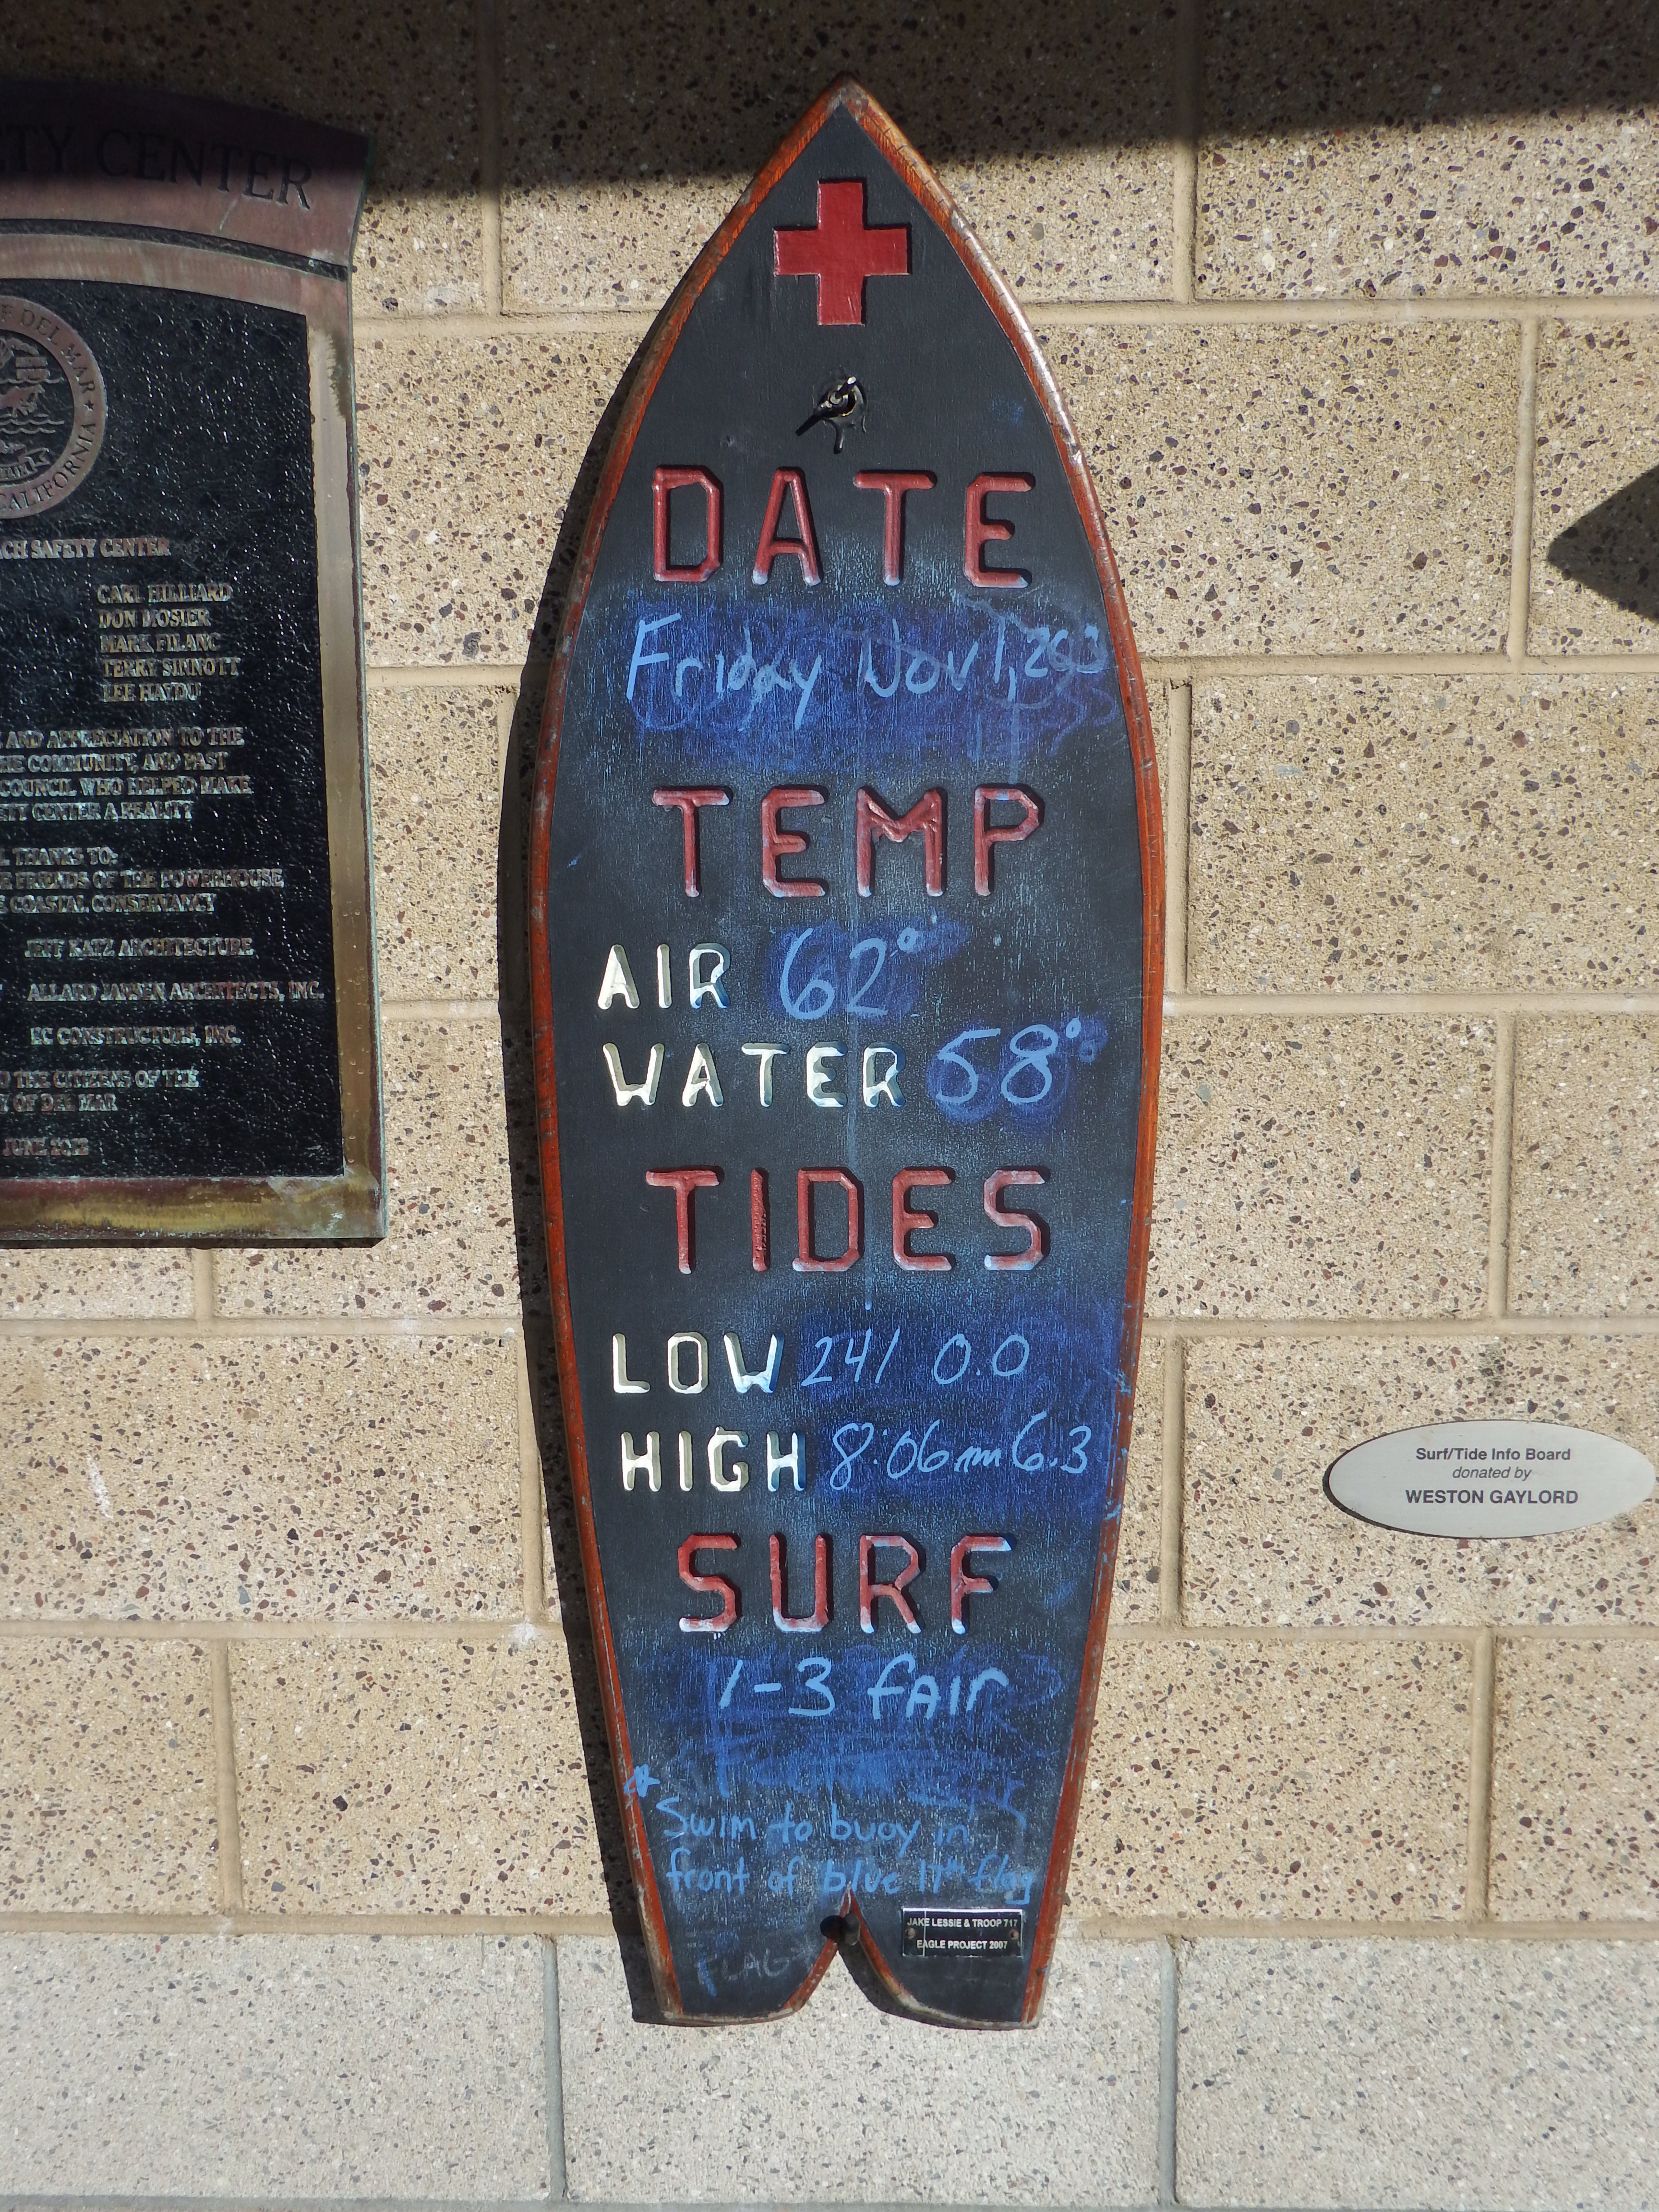 TY CENTER
DEL MAR
CALIFORNIA
ACH SAFETY CENTER
CARL HILLIARD
DON MOSIER
MARK FILANC
TERRY SINNOTT
LEE HAYDU
AND APPRECIATION TO THE
COMMUNITY, AND PAST
COUNCIL WHO HELPED MAKE
CENTER A REALITY
THANKS TO:
FRIENDS OF THE POWERHOUSE
COASTAL CONSERVANCY
JEFF KATZ ARCHITECTURE
ALLARD JANSEN ARCHITECTS, INC.
EC CONSTRUCTORS, INC.
THE CITIZENS OF THE
OF DEL MAR
JUNE 2012
DATE
Friday Nov 1,
TEMP
AIR 62°
WATER 58°
TIDES
LOW 241 0.0
HIGH 8:06am 6.3
SURF
1-3 fair
* Swim to buoy in
front of blue 17th flag
FLAG
JAKE LESSIE & TROOP 717
EAGLE PROJECT 2007
Surf/Tide Info Board
donated by
WESTON GAYLORD